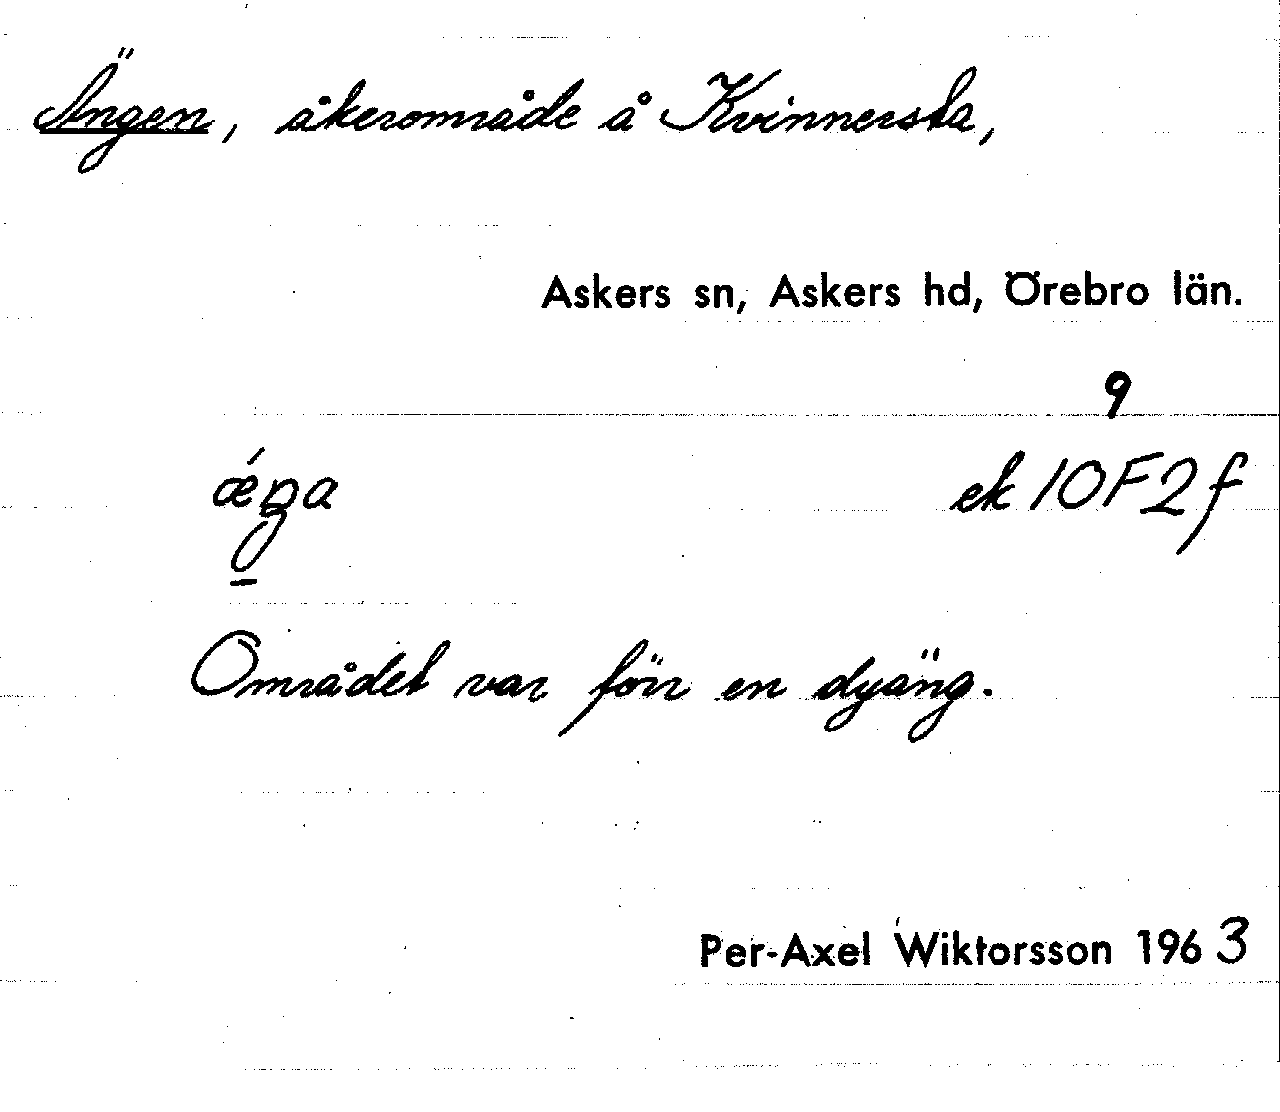 Ängen, åkerområde å Kvinnersta,
Askers sn, Askers hd, Örebro län.
9
ek 10F2f
Området var förr en dyäng.
Per-Axel Wiktorsson 1963